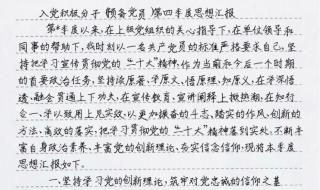 入党积极分子(预备党员)第四季度思想汇报
第*季度以来,在上级党组织的关心指导下,在单位领导和
同事的帮助下,我时刻以一名共产党员的标准严格要求自己,坚
持把学习宣传贯彻党的"二十大"精神,作为当前和今后一个时期
的首要政治任务,坚持读原著,学原文,悟原理,知原义,在学深悟
透,融会贯通上下功夫,在宣传教育,宣讲阐释上掀热潮,在知行
合一、学以致用上见实效,以更加振奋的斗志,踏实的作风,创新的
方法,高效的落实,把学习贯彻党的"二十大"精神落到实处,不断丰
富自身政治素养、丰富党的创新理论,夯实信念信仰,现将本季度
思想汇报如下。
一、坚持学习党的创新理论,筑牢对党忠诚的信仰之基